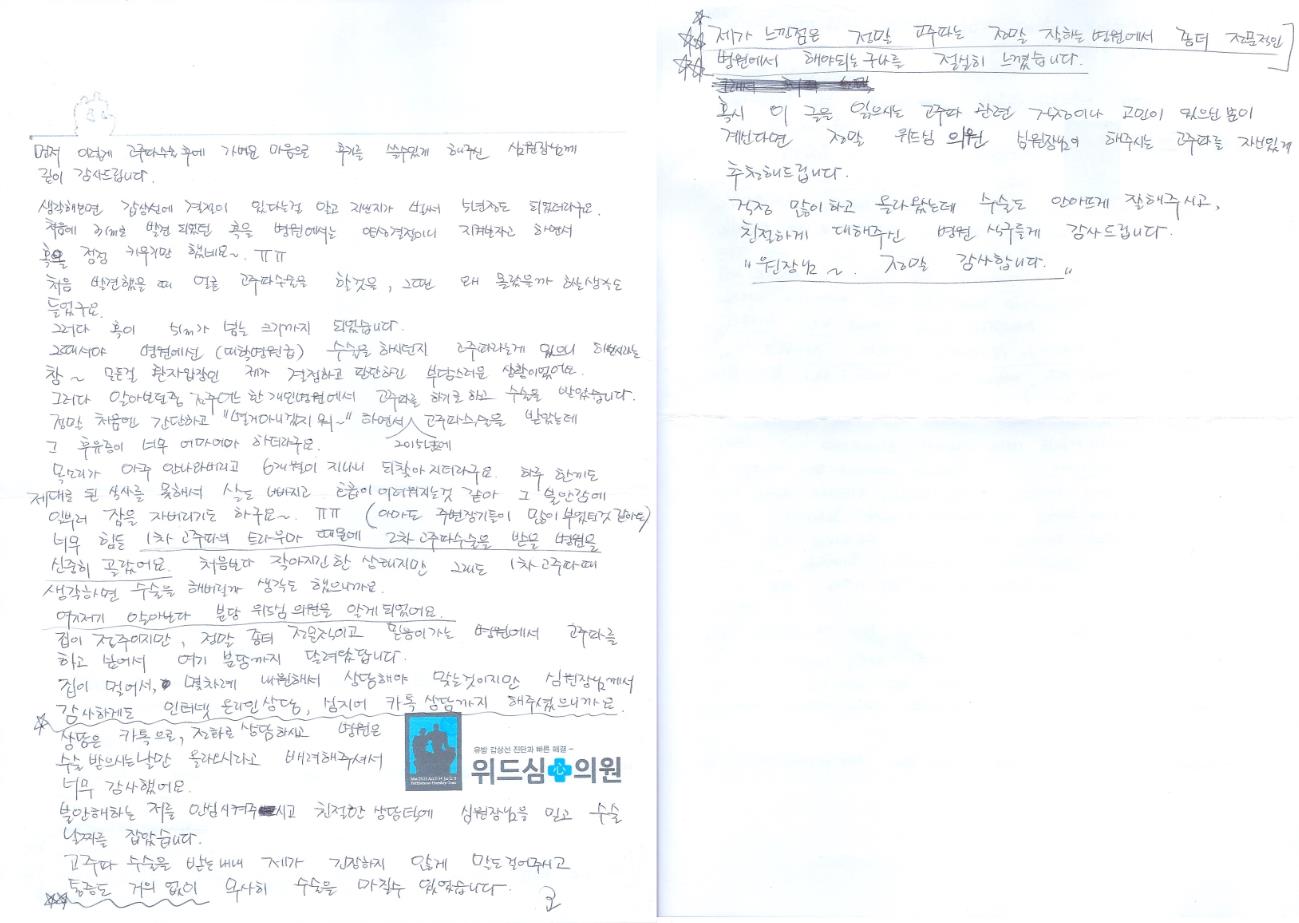 먼저 이렇게 고주파수술후에 가벼운 마음으로 후기를 쓸수있게 해주신 심원장님께
깊이 감사드립니다.
생각해보면 갑상선에 결절이 있다는걸 알고 지낸지가 벌써 5년정도 되었더라구요.
처음에 발견 되었던 혹을 병원에서는 양성결절이니 지켜보자고 하면서
혹을 점점 키우기만 했네요~. ㅠㅠ
처음 발견했을 때 얼른 고주파수술을 할것을, 그땐 왜 몰랐을까 하는생각도
들었구요.
그러다 혹이 5cm가 넘는 크기까지 되었습니다.
그때서야 병원에선 (대학병원급) 수술을 하시던지 고주파라는게 있으니
참~ 모든걸 환자입장인 제가 결정하고 판단하긴 부담스러운 상황이었어요.
그러다 알아보던중 전주에있는 한 개인병원에서 고주파를 하기로 하고 수술을 받았습니다.
정말 처음엔 간단하고 "별거아니겠지 뭐~" 하면서 고주파수술을 받았는데
2015년도에
그 후유증이 너무 어마어마 하더라구요.
목소리가 아주 안나와버리고 6개월이 지나니 되찾아 지더라구요. 하루 한끼도
제대로 된 식사를 못해서 살도 빠지고 호흡이 어려워지는것 같아 그 불안감에
일부러 잠을 자버리기도 하구요~. ㅠㅠ (아마도 주변장기들이 많이 부었던것 같아요)
너무 힘든 1차 고주파의 트라우마 때문에 2차 고주파수술을 받을 병원을
신중히 골랐어요. 처음보다 작아지긴한 상태지만 그래도 1차 고주파때
생각하면 수술을 해버릴까 생각도 했으니까요.
여기저기 알아보다 분당 위드심 의원을 알게 되었어요.
집이 전주이지만, 정말 좀더 전문적이고 믿음이가는 병원에서 고주파를
하고 싶어서 여기 분당까지 달려왔답니다.
집이 멀어서, 몇차례 내원해서 상담해야 맞는것이지만 심원장님께서
감사하게도 인터넷 온라인상담, 심지어 카톡 상담까지 해주셨으니까요.
상담은 카톡으로, 전화로 상담하시고 병원은
수술 받으시는날만 올라오시라고 배려해주셔서
너무 감사했어요.
유방 갑상선 진단과 빠른 해결~
위드심의원
불안해하는 저를 안심시켜주시고 친절한 상담덕에 심원장님을 믿고 수술
날짜를 잡았습니다.
고주파 수술을 받는내내 제가 긴장하지 않게 말도 걸어주시고
통증도 거의 없이 무사히 수술을 마칠수 있었습니다.
제가 느낀점은 정말 고주파는 정말 잘하는 병원에서 좀더 전문적인
병원에서 해야되는구나를 절실히 느꼈습니다.
혹시 이 글을 읽으시는 고주파 관련 걱정이나 고민이 있으신 분이
계신다면 정말 위드심 의원 심원장님이 해주시는 고주파를 자신있게
추천해드립니다.
걱정 많이하고 올라왔는데 수술도 안아프게 잘해주시고,
친절하게 대해주신 병원 식구들께 감사드립니다.
"원장님~. 정말 감사합니다."